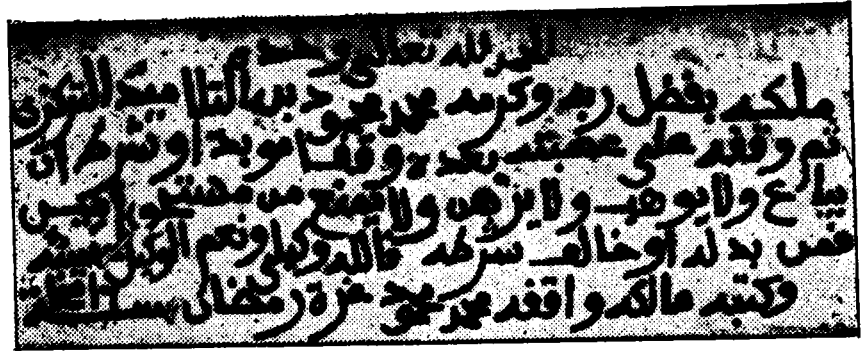 الحمد لله تعالى وحده
ملكه بفضل ربه وكرمه محمد محمود بن التلاميد التركزي
ثم وقفه على عصبته بعده وقفا مؤبدا وشرط ان
يباع ولا يوهب ولا يرهن ولا يمنع من مستحق
فمن بدله أو خالف شرطه فالله وكيلي ونعم الوكيل
وكتبه مالكه واقفه محمد محمود غرة رمضان سنة